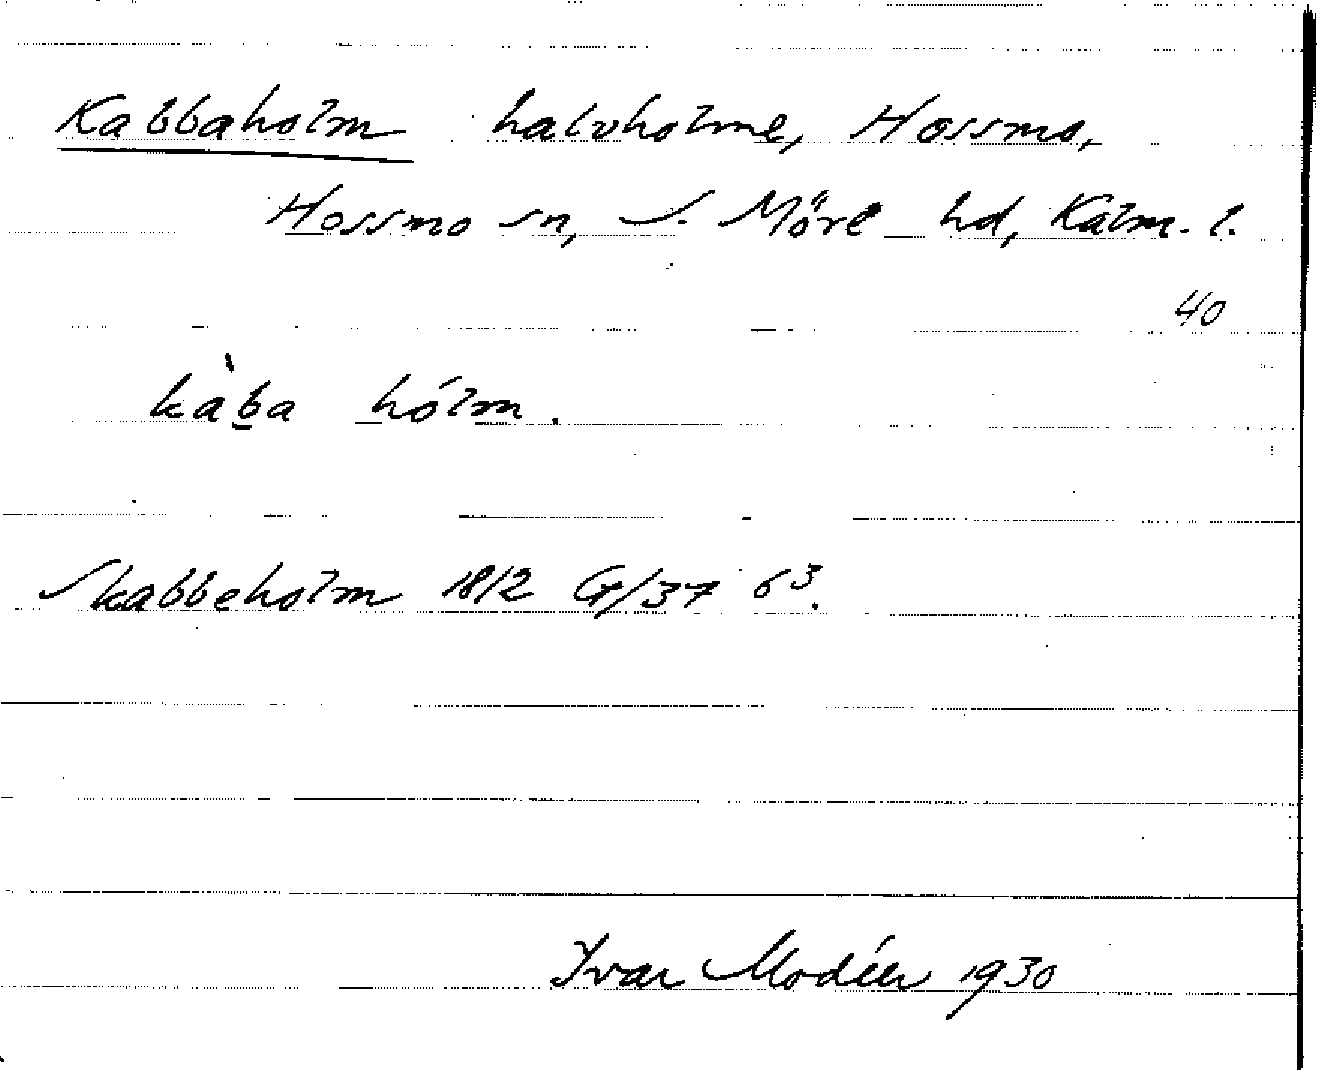 Kabbaholm halvholme, Hossmo,
Hossmo sn, S. Möre hd, Kalm. l.
40
kàba hólm.
Skabbeholm 1812 G/37 6³.
Ivar Modéer 1930